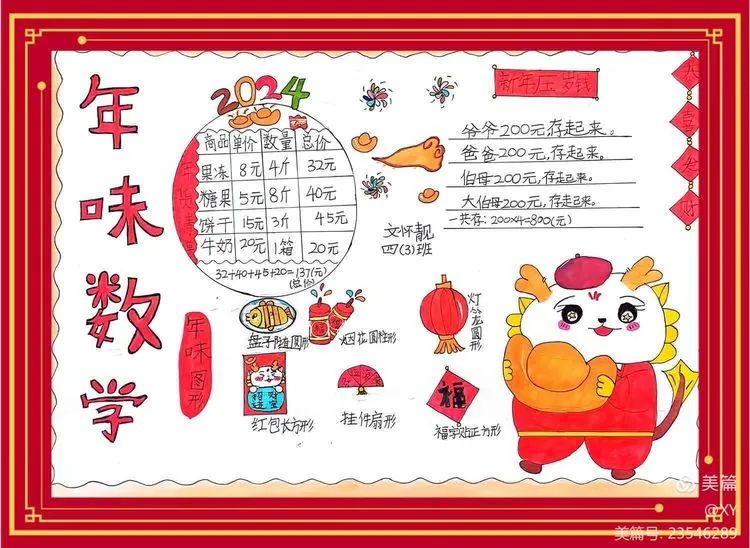 年味数学
2024
年货清单
商品 单价 数量 总价
果冻 8元 4斤 32元
糖果 5元 8斤 40元
饼干 15元 3斤 45元
牛奶 20元 1箱 20元
32+40+45+20=137(元)
(总价)
新年压岁钱
爷爷200元存起来。
爸爸200元,存起来。
伯母200元,存起来。
大伯母200元,存起来。
一共存:200×4=800(元)
大喜发财
文怀靓
四(3)班
年味图形
盘子椭圆形
烟花圆柱形
灯笼圆形
红包长方形
挂件扇形
福
福字贴正方形
美篇
@XY
美篇号: 23546289